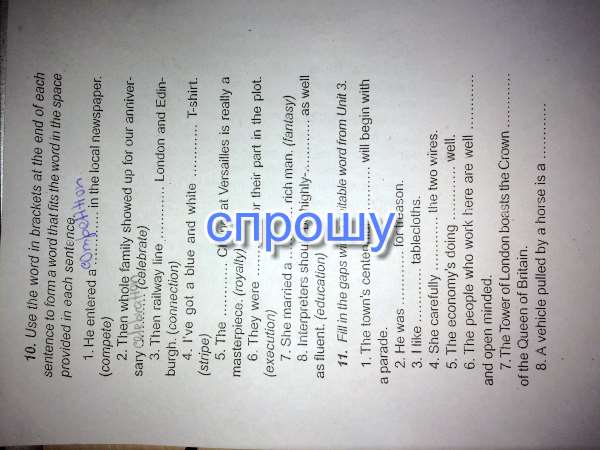 10. Use the word in brackets at the end of each
sentence to form a word that fits the word in the space
provided in each sentence.
1. He entered a competition in the local newspaper.
(compete)
2. Then whole family showed up for our anniver-
sary celebration (celebrate)
3. Then railway line ............ London and Edin-
burgh. (connection)
4. I've got a blue and white ............ T-shirt.
(stripe)
5. The ............ at Versailles is really a
masterpiece. (royalty)
6. They were ............ for their part in the plot.
(execution)
7. She married a ............ rich man. (fantasy)
8. Interpreters should highly-............ as well
as fluent. (education)
11. Fill in the gaps with suitable word from Unit 3.
1. The town's centen ............ will begin with
a parade.
2. He was ............ for treason.
3. I like ............ tablecloths.
4. She carefully ............ the two wires.
5. The economy's doing ............ well.
6. The people who work here are well ............
and open minded.
7. The Tower of London boasts the Crown ............
of the Queen of Britain.
8. A vehicle pulled by a horse is a ............
спрошу